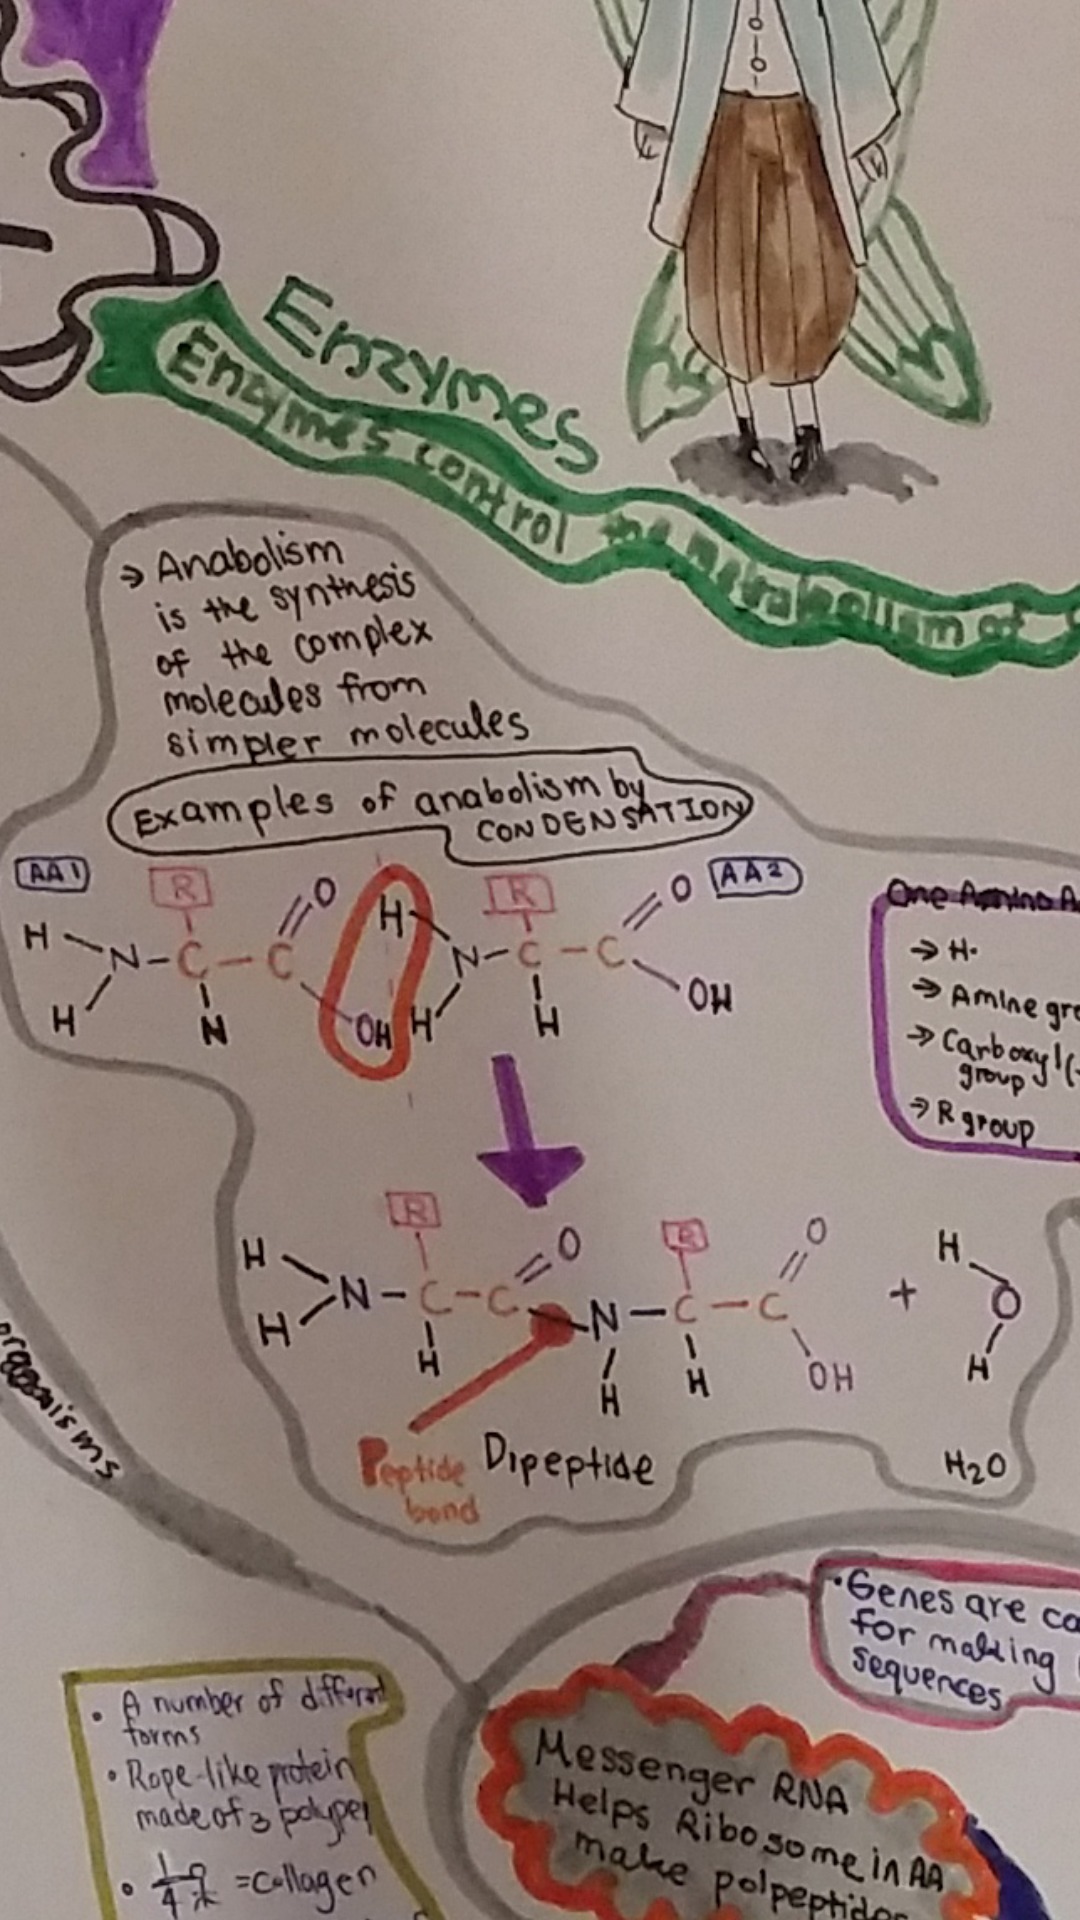 Enzymes
Enzymes control the metabolism of
→ Anabolism
is the synthesis
of the complex
molecules from
simpler molecules
Examples of anabolism by
CONDENSATION
AA1
R
O
H
N
C
C
H
N
OH
H
R
O
AA2
N
C
C
H
H
OH
One Amino A
→ H.
→ Amine gro
→ Carboxyl (-
group
→ R group
R
O
H
N
C
C
H
H
N
H
R
C
C
O
H
OH
+
H
O
H
Peptide
bond
Dipeptide
H2O
organisms
• Genes are co
for making
sequences
• A number of different
forms
• Rope-like protein
made of 3 polypep
• 1/4 = Collagen
Messenger RNA
Helps Ribosome in AA
make polpeptides